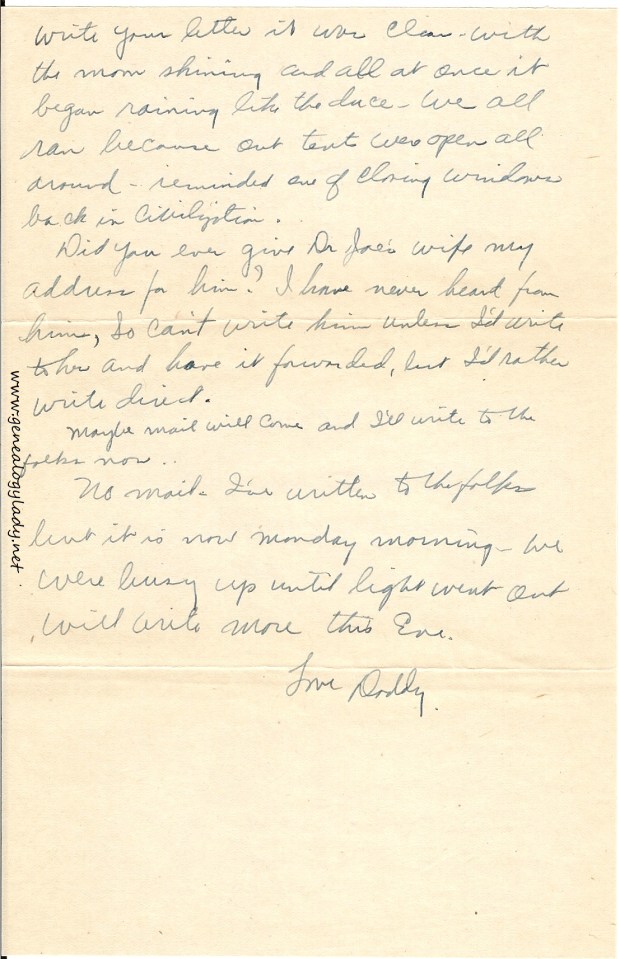 write your letter it was clear - with
the moon shining and all at once it
began raining like the duce - We all
ran because our tents were open all
around - reminded one of closing windows
back in civilization.
Did you ever give Dr Joe's wife my
address for him? I have never heard from
him, So can't write him unless I'd write
to her and have it forwarded, but I'd rather
write direct.
Maybe mail will come and I'll write to the
folks now..
No mail - I've written to the folks
but it is now Monday morning - We
were busy up until light went out
will write more this Eve.
Love Daddy.
www.genealogylady.net